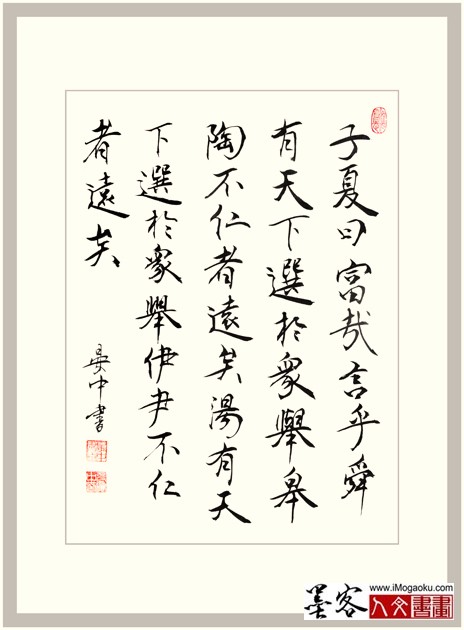 子夏曰富哉言乎舜
有天下選於衆舉皋
陶不仁者遠矣湯有天
下選於衆舉伊尹不仁
者遠矣
中書
墨客
www.iMogaoku.com
人文書畫